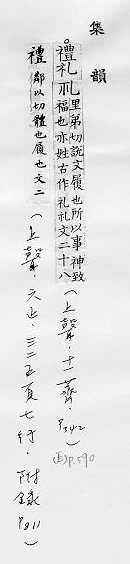 集韻
。禮礼𠃞里弟切說文履也所以事神致
福也亦姓古作礼𠃞文二十八
(上聲.十一薺.P342)
(五)P.590
禮鄰以切體也履也文二
(上聲六止.三二五頁七行.附錄P811)